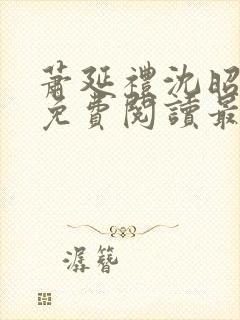 蕭延禮沈昭
免費閱讀最
潺簪